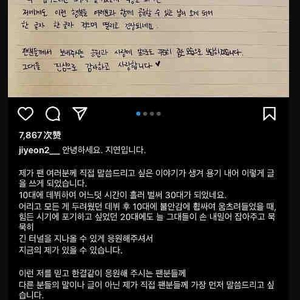 저에게도 이런 행복을 여러분과 함께 공유할 수 있는 날이 오게 되어
한 글자 한 글자 적으며 떨리고 긴장되네요.
팬분들께서 보내주신 응원과 사랑에
그대들을 진심으로 감사하고 사랑합니다 ♥
7,867 次赞
jiyeon2__ 안녕하세요. 지연입니다.
제가 팬 여러분께 직접 말씀드리고 싶은 이야기가 생겨 용기 내어 이렇게 글을 쓰게 되었습니다.
10대에 데뷔하여 어느덧 시간이 흘러 벌써 30대가 되었네요.
어리고 모든 게 두려웠던 데뷔 후 10대에 불안감에 휩싸여 움츠러들었을 때,
힘든 시기에 포기하고 싶었던 20대에도 늘 그대들이 손 내밀어 잡아주고 묵묵히
긴 터널을 지나올 수 있게 응원해주셔서
지금의 제가 있을 수 있습니다.
이런 저를 믿고 한결같이 응원해 주시는 팬분들께
다른 분들의 말이나 글이 아닌 제가 직접 팬분들께 가장 먼저 말씀드리고 싶